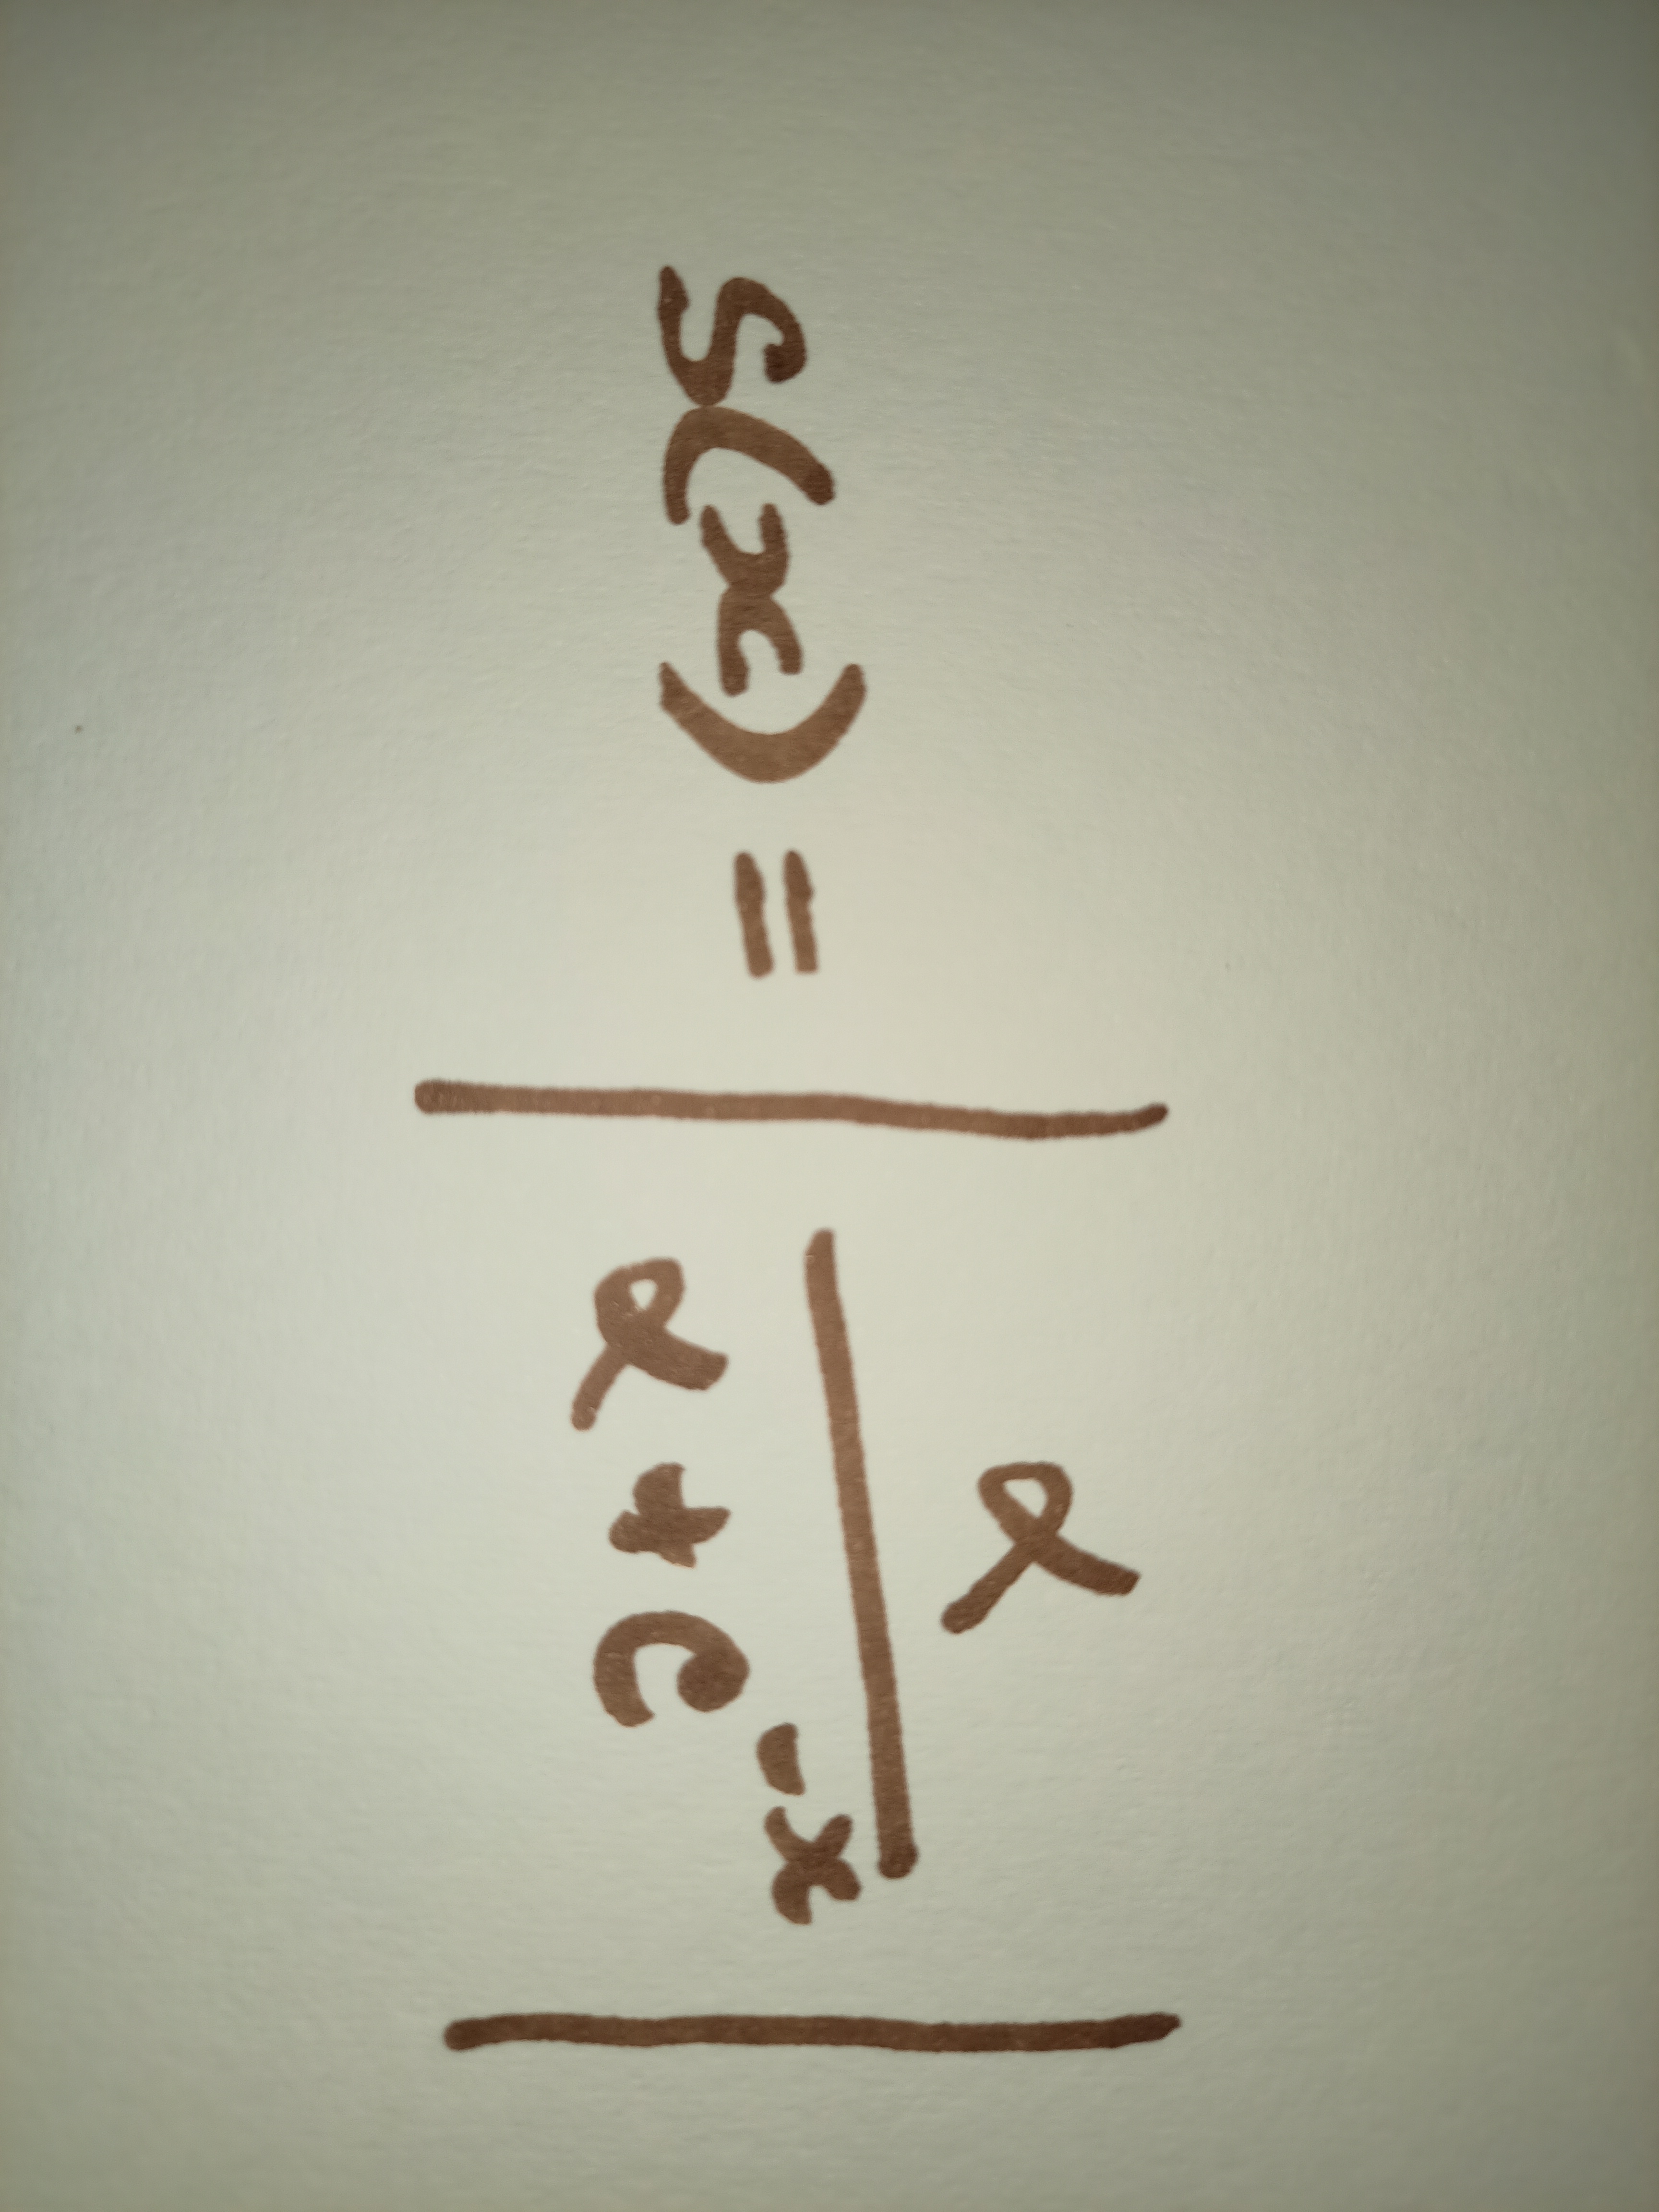 s(x) = | α / (α + e^{-x}) |